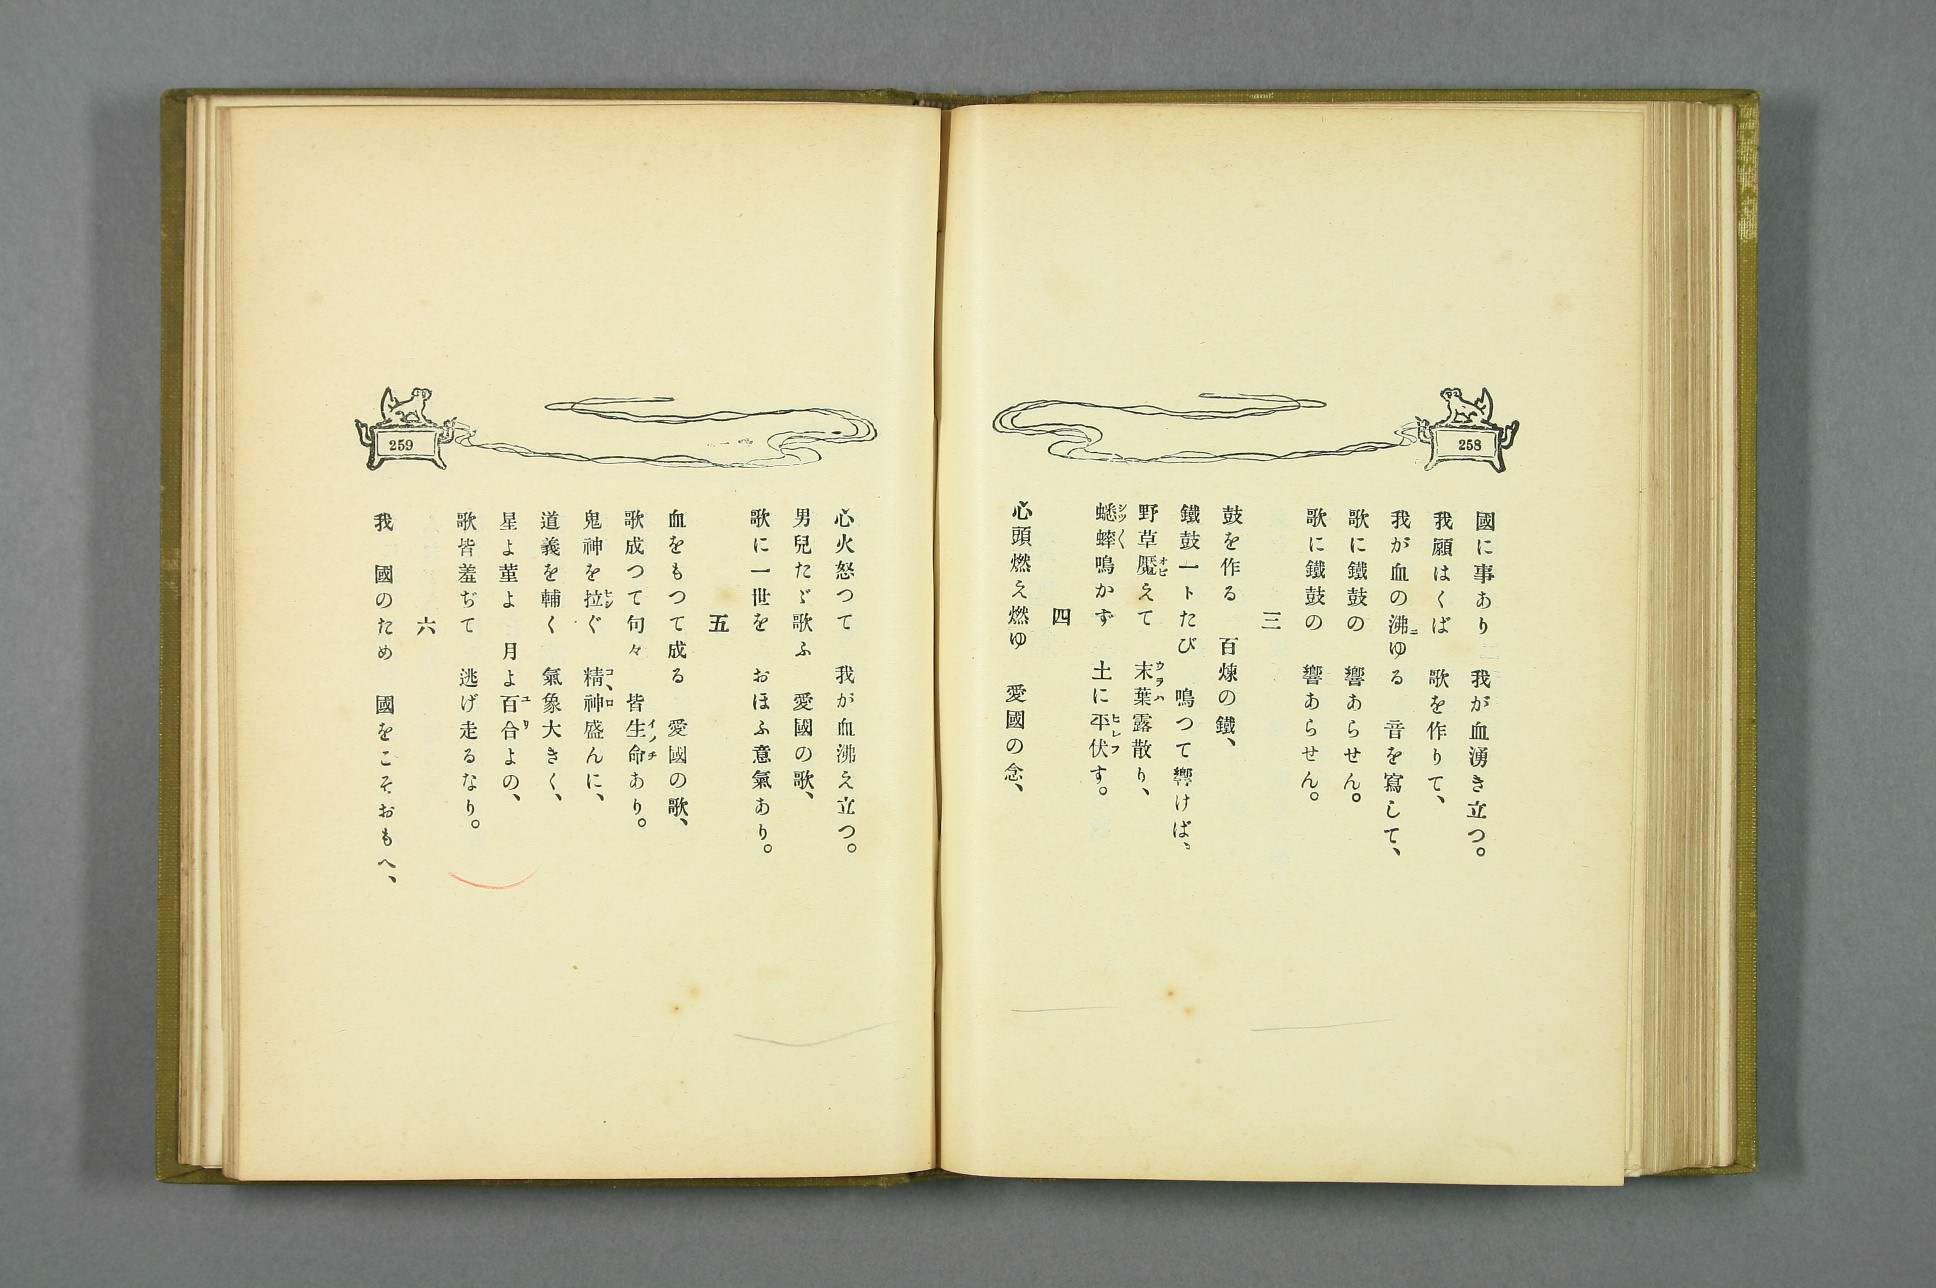 258
國に事あり 我が血湧き立つ。
我願はくば 歌を作りて、
我が血の沸ゆる 音を寫して、
歌に鐵鼓の 響あらせん。
歌に鐵鼓の 響あらせん。
三
鼓を作る 百煉の鐵、
鐵鼓一トたび 鳴つて響けば、
野草魘えて 末葉露散り、
蟋蟀鳴かず 土に平伏す。
四
心頭燃え燃ゆ 愛國の念、
259
心火怒つて 我が血沸え立つ。
男兒たゞ歌ふ 愛國の歌、
歌に一世を おほふ意氣あり。
五
血をもつて成る 愛國の歌、
歌成つて句々 皆生命あり。
鬼神を拉ぐ 精神盛んに、
道義を輔く 氣象大きく、
星よ菫よ 月よ百合よの、
歌皆羞ぢて 逃げ走るなり。
六
我 國のため 國をこそおもへ、